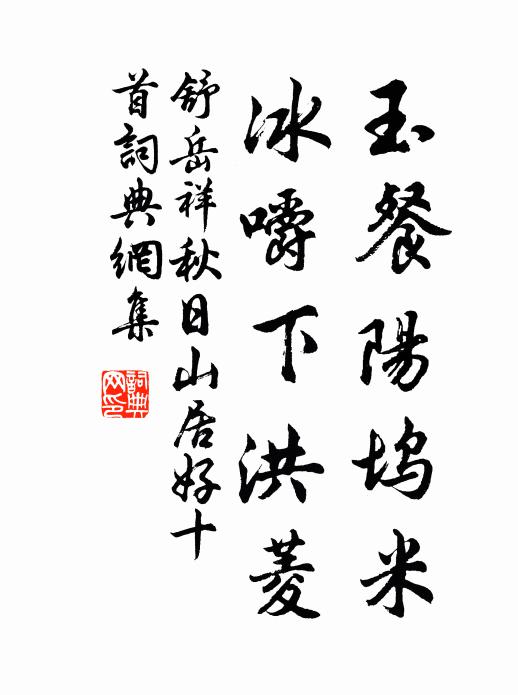 玉餐陽坞米
冰嚼下洪菱
舒岳祥秋日山居好十
首詞典網集
詞典
网印